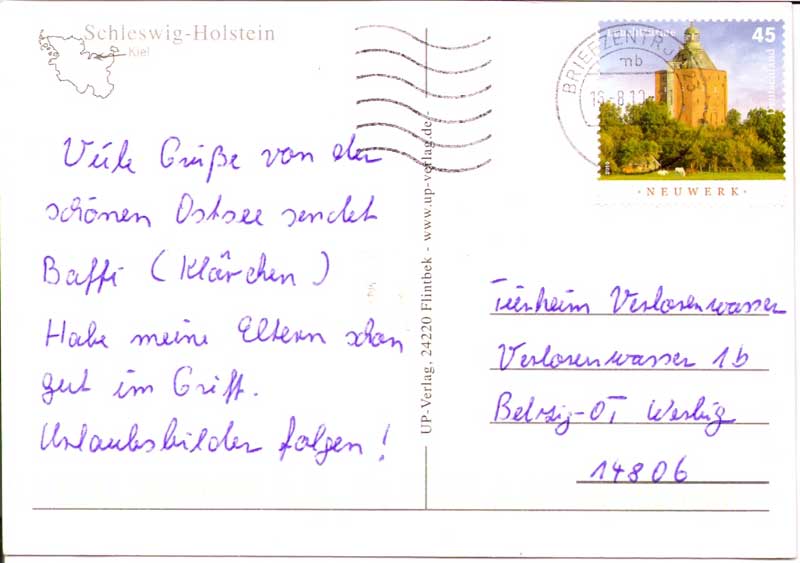 Schleswig-Holstein
Kiel
Viele Grüße von der
schönen Ostsee sendet
Baffi (Klärchen)
Habe meine Eltern schon
gut im Griff.
Urlaubsbilder folgen!
UP-Verlag, 24220 Flintbek - www.up-verlag.de -
BRIEFZENTRUM
mb
45
NEUWERK
Tierheim Verlorenwasser
Verlorenwasser 1b
Belzig-OT Werbig
14806